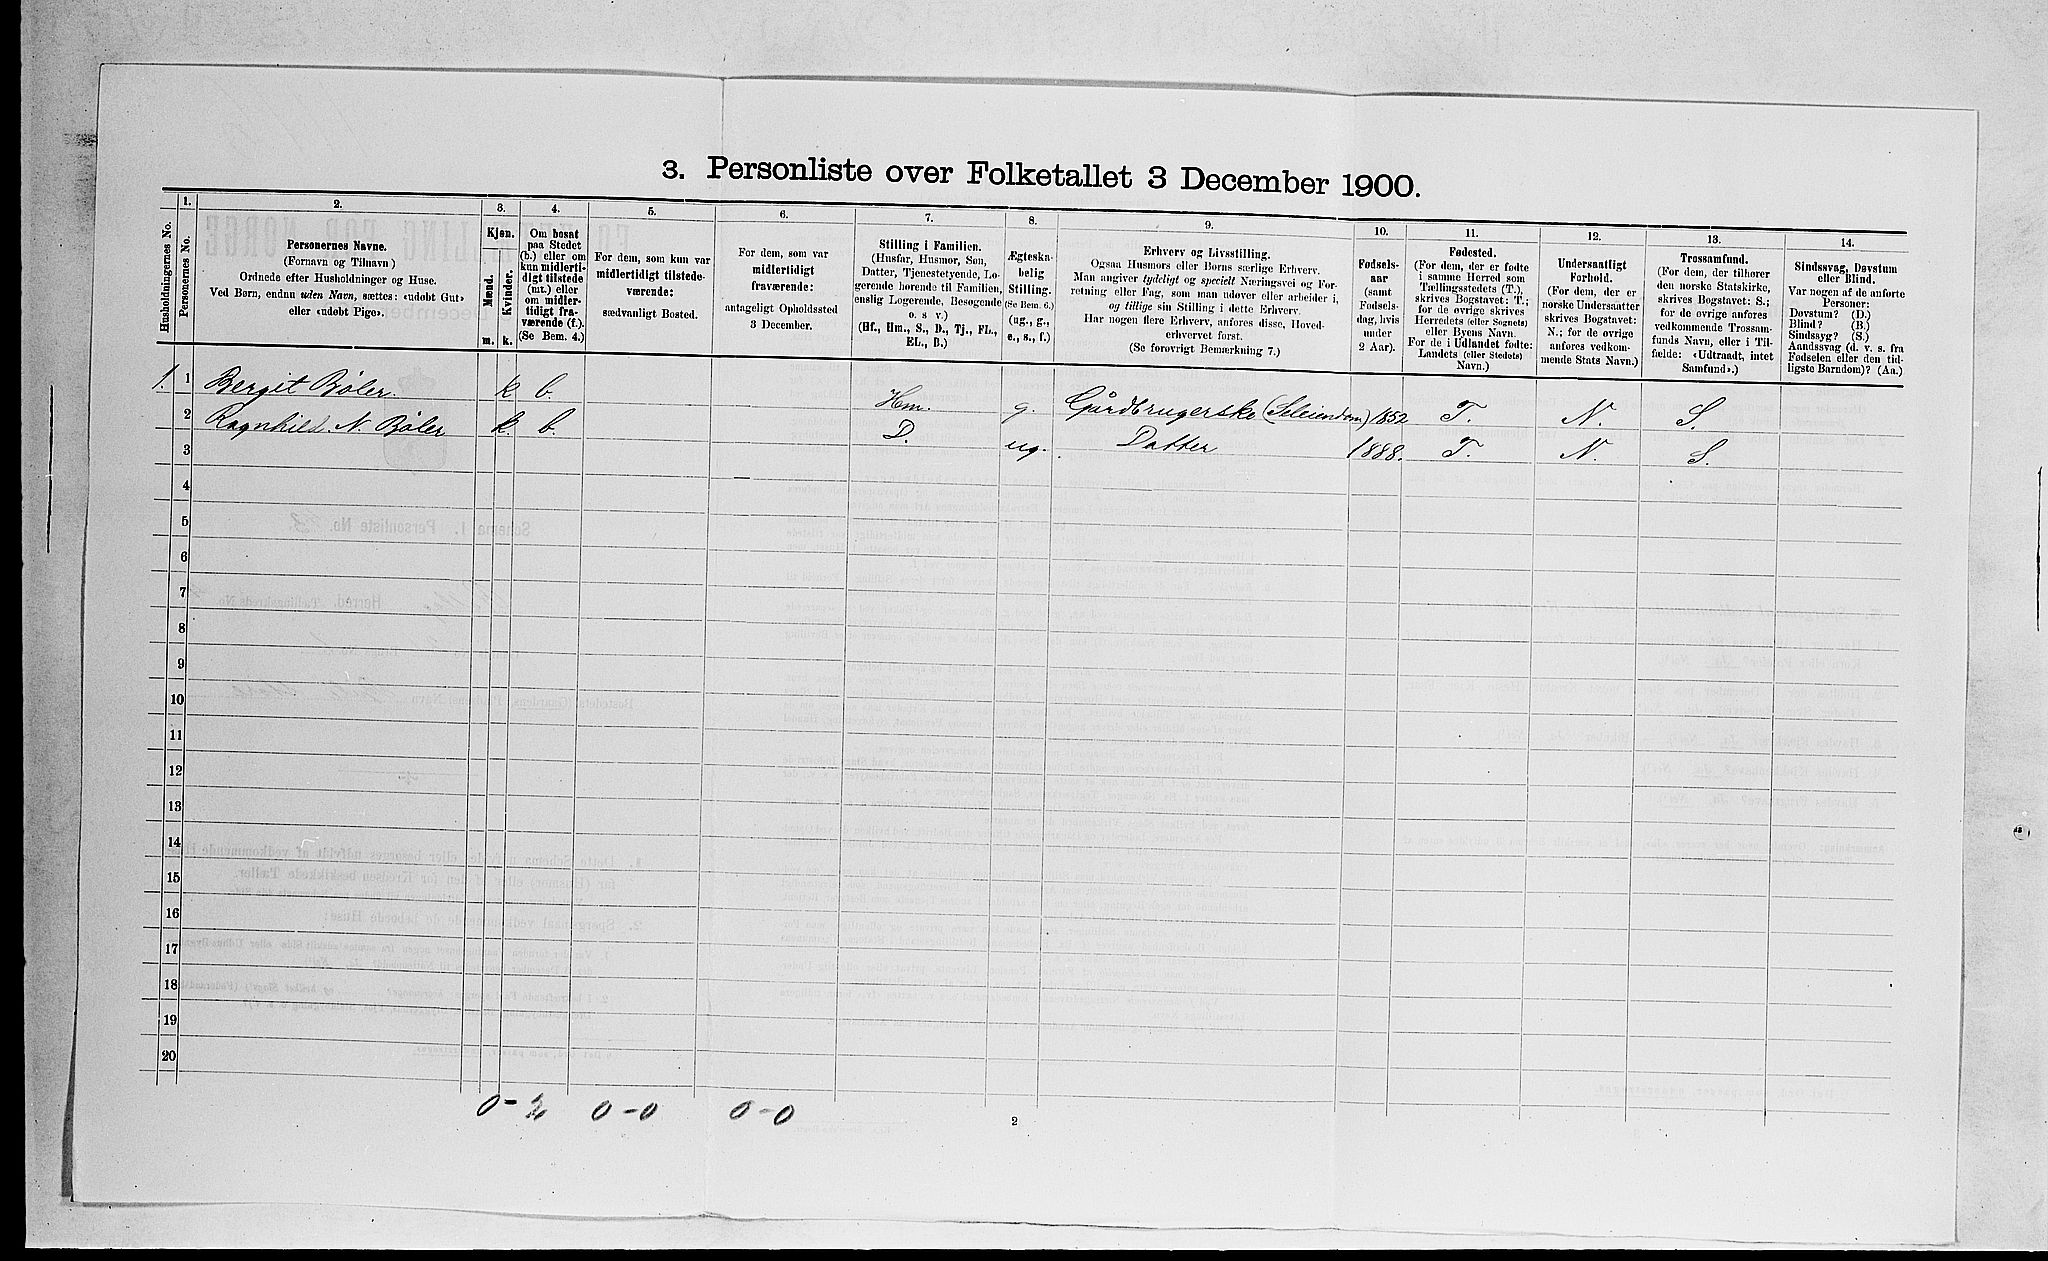 3. Personliste over Folketallet 3 December 1900.
1. 2. 3. 4. 5. 6. 7. 8. 9. 10. 11. 12. 13. 14.
Husholdningernes No.
Personernes No.
Personernes Navne.
(Fornavn og Tilnavn)
Ordnede efter Husholdninger og Huse.
Ved Børn, endnu uden Navn, sættes: «udøbt Gut»
eller «udøbt Pige».
Kjøn.
Mænd.
Kvinder.
m. k.
Om bosat
paa Stedet
(b.) eller om
kun midlerti-
digt tilstede
(mt.) eller
om midler-
tidigt fra-
værende (f.).
(Se Bem. 4.)
For dem, som kun var
midlertidigt tilstede-
værende:
sædvanligt Bosted.
For dem, som var
midlertidigt
fraværende:
antageligt Opholdssted
3 December.
Stilling i Familien.
(Husfar, Husmor, Søn,
Datter, Tjenestetyende, Lo-
gerende hørende til Familien,
enslig Logerende, Besøgende
o. s v.)
(Hf., Hm., S., D., Tj., FL.,
EL., B.)
Ægteska-
belig
Stilling.
(Se Bem. 6.)
(ug., g.,
e., s., f.)
Erhverv og Livsstilling.
Ogsaa Husmors eller Børns særlige Erhverv.
Man angiver tydeligt og specielt Næringsvei og For-
retning eller Fag, som man udøver eller arbeider i,
og tillige sin Stilling i dette Erhverv.
Har nogen flere Erhverv, anføres disse, Hoved-
erhvervet først.
(Se forøvrigt Bemærkning 7.)
Fødsels-
aar
(samt
Fødsels-
dag, hvis
under
2 Aar).
Fødested.
(For dem, der er fødte
i samme Herred som
Tællingsstedets (T.),
skrives Bogstavet: T.;
for de øvrige skrives
Herredets (eller Sognets)
eller Byens Navn.
For de i Udlandet fødte:
Landets (eller Stedets)
Navn.)
Undersaatligt
Forhold.
(For dem, der er
norske Undersaatter
skrives Bogstavet:
N.; for de øvrige
anføres vedkom-
mende Stats Navn.)
Trossamfund.
(For dem, der tilhører
den norske Statskirke,
skrives Bogstavet: S.;
for de øvrige anføres
vedkommende Trossam-
funds Navn, eller i Til-
fælde: «Udtraadt, intet
Samfund».)
Sindssvag, Døvstum
eller Blind.
Var nogen af de anførte
Personer:
Døvstum? (D.)
Blind? (B.)
Sindssyg? (S.)
Aandssvag (d. v. s. fra
Fødselen eller den tid-
ligste Barndom)? (Aa.)
1. 1 Bergit Bøler. k b. Hm. g. Gårdbrugerske (Seleiendom) 1852 T. N. S.
2 Ragnhild N. Bøler k. b. D. ug. Datter 1888. T. N. S.
3
4
5
6
7
8
9
10
11
12
13
14
15
16
17
18
19
20
0-2 0-0 0-0
2